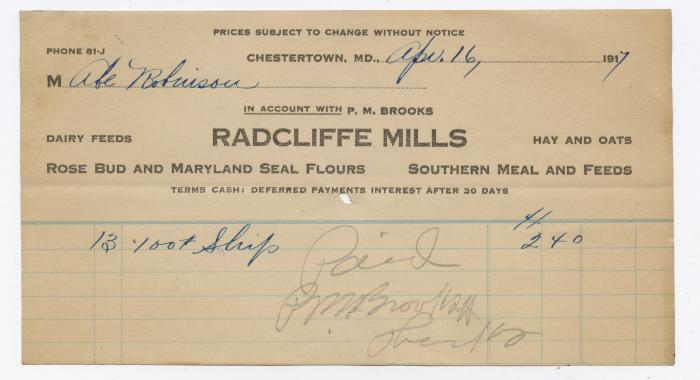 PRICES SUBJECT TO CHANGE WITHOUT NOTICE
PHONE 81-J
CHESTERTOWN, MD., Apr. 16, 1917
M Abe Robinson
IN ACCOUNT WITH P. M. BROOKS
DAIRY FEEDS RADCLIFFE MILLS HAY AND OATS
ROSE BUD AND MARYLAND SEAL FLOURS SOUTHERN MEAL AND FEEDS
TERMS CASH: DEFERRED PAYMENTS INTEREST AFTER 30 DAYS
13 100# Ship 2 40
Paid
PM Brooks